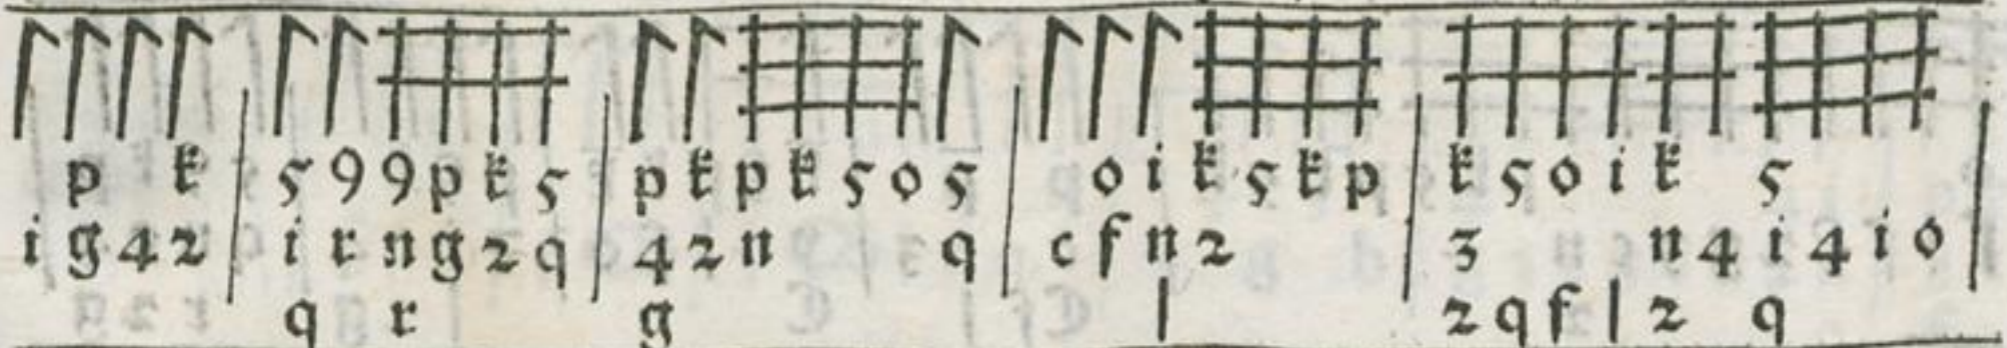 p k | 5 9 9 p k 5 | p k p k 5 o 5 | o i k 5 k p | k 5 o i k 5 |
i g 4 2 | i r n g 2 q | 4 2 n q | c f n 2 | 3 n 4 i 4 i o |
q r g l 2 q f l 2 q